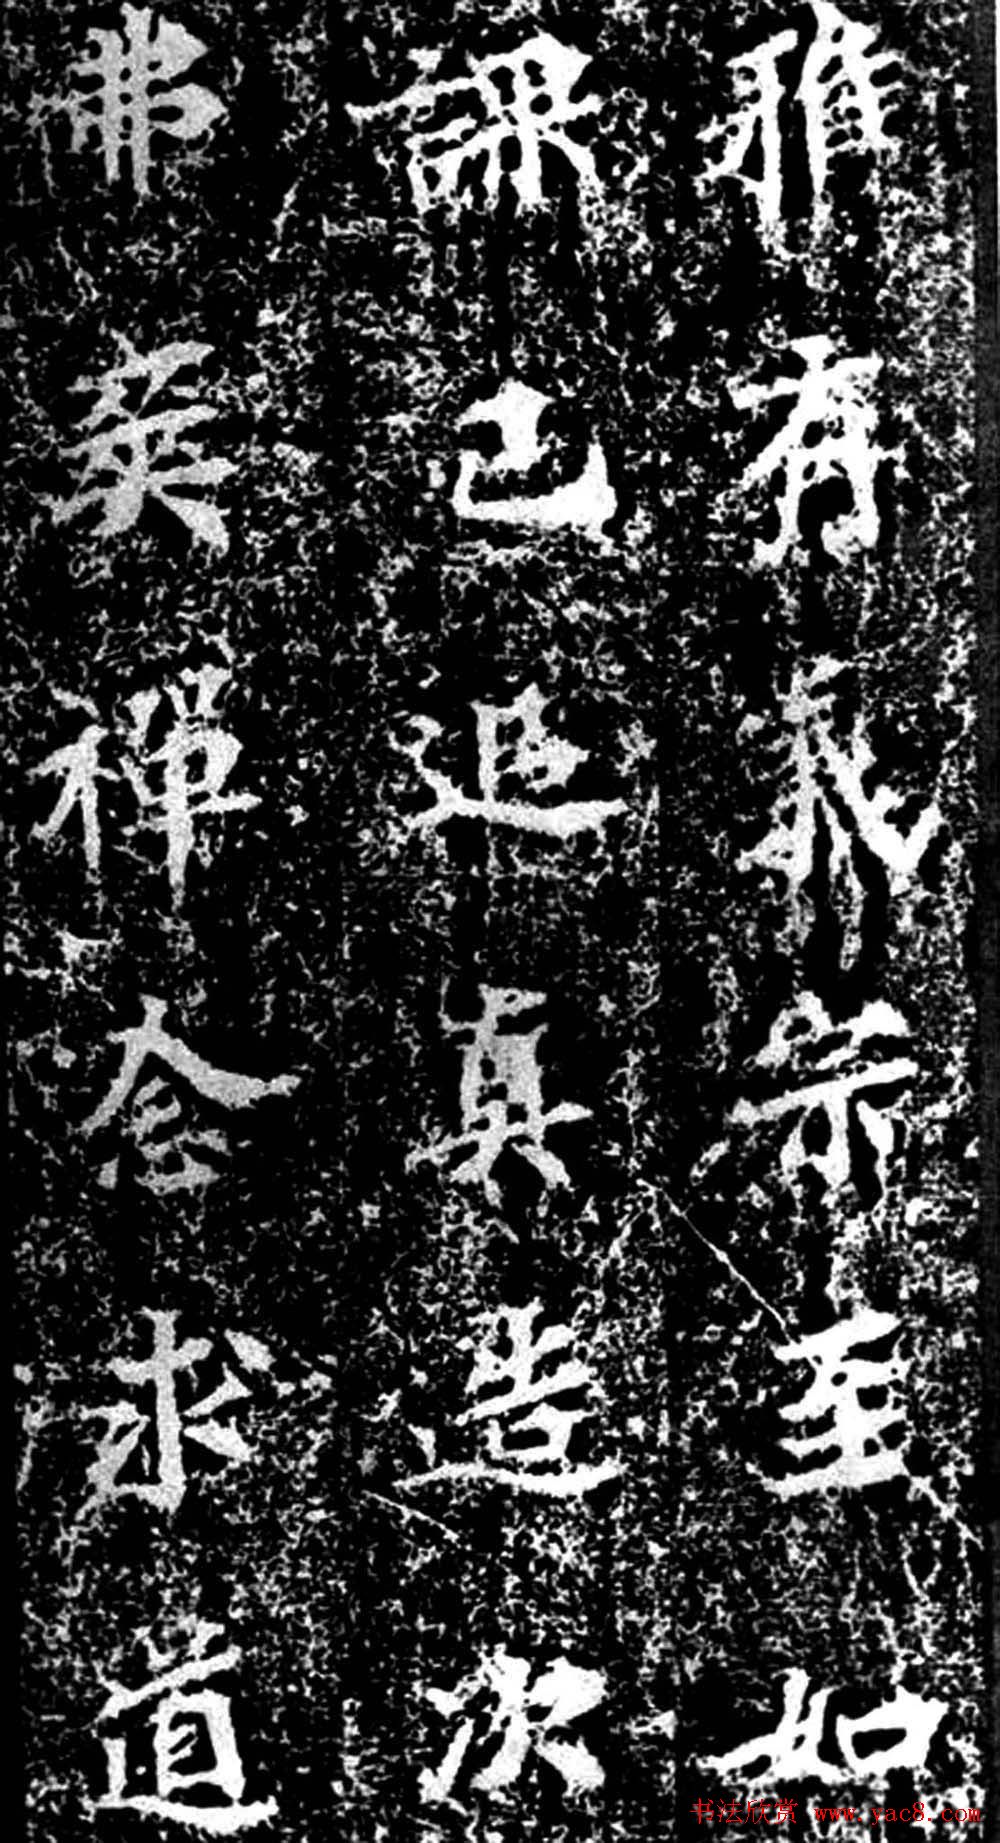 雅有宗至如
課己追真造次
弗爽禪念求道
书法欣赏 www.yac8.com